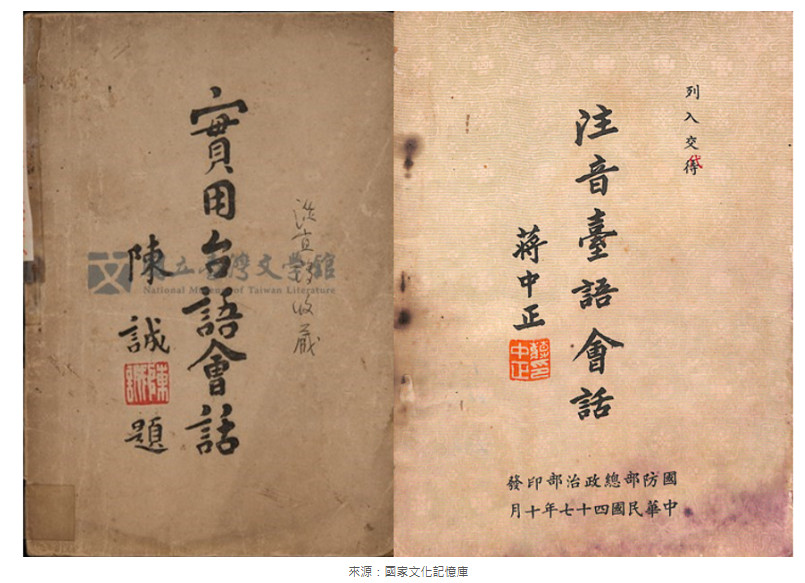 實用台語會話
陳誠題
陳誠
收藏
立臺灣文學館
National Museum of Taiwan Literature
列入交待
代
注音臺語會話
蔣中正
蔣中正印
國防部總政治部印發
中華民國四十七年十月
來源：國家文化記憶庫